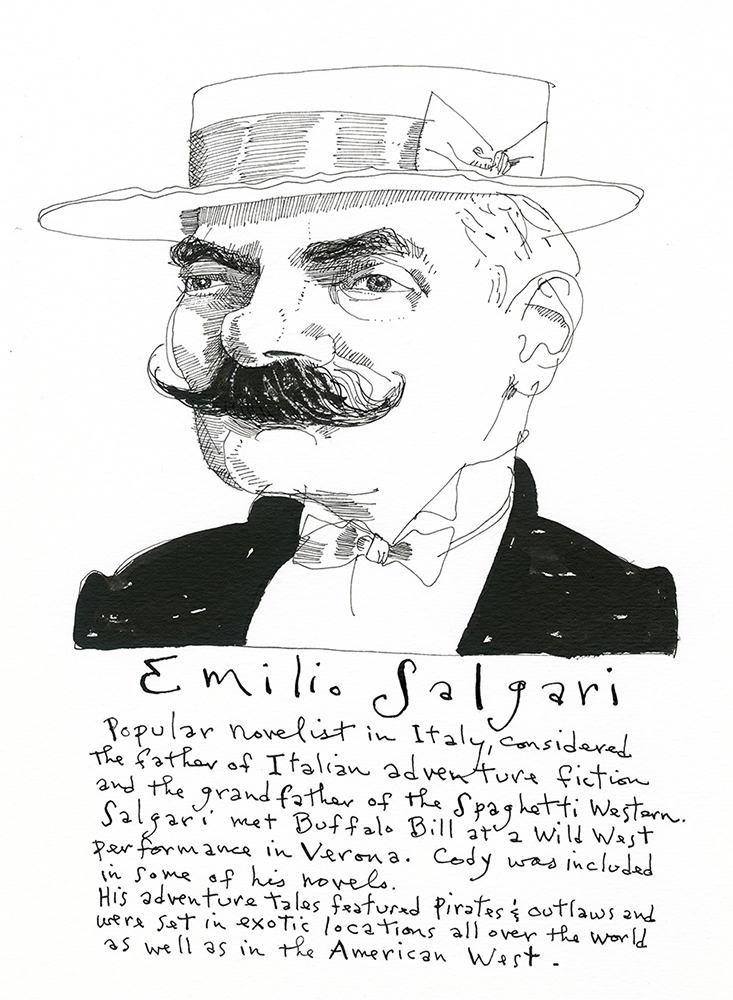 Emilio Salgari
Popular novelist in Italy, considered
the father of Italian adventure fiction
and the grandfather of the Spaghetti Western.
Salgari met Buffalo Bill at a Wild West
performance in Verona. Cody was included
in some of his novels.
His adventure tales featured pirates & outlaws and
were set in exotic locations all over the world
as well as in the American West.